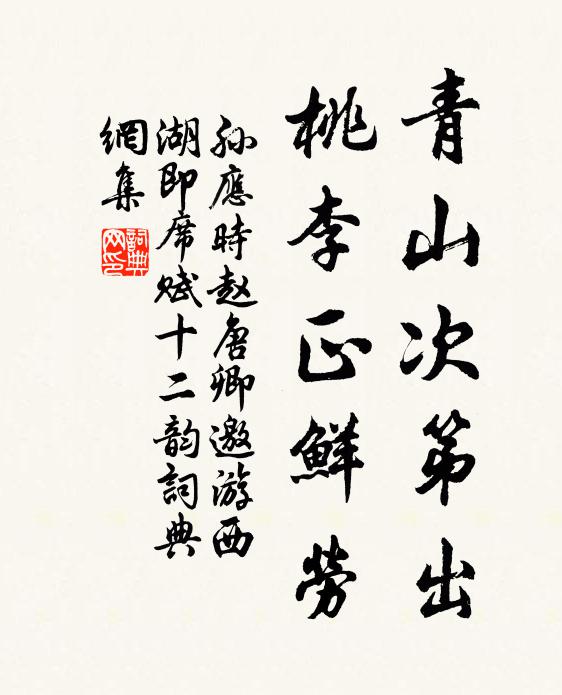 青山次第出
桃李正鮮勞
孙應時赵唐卿邀游西
湖即席赋十二韵詞典
網集
詞典网印